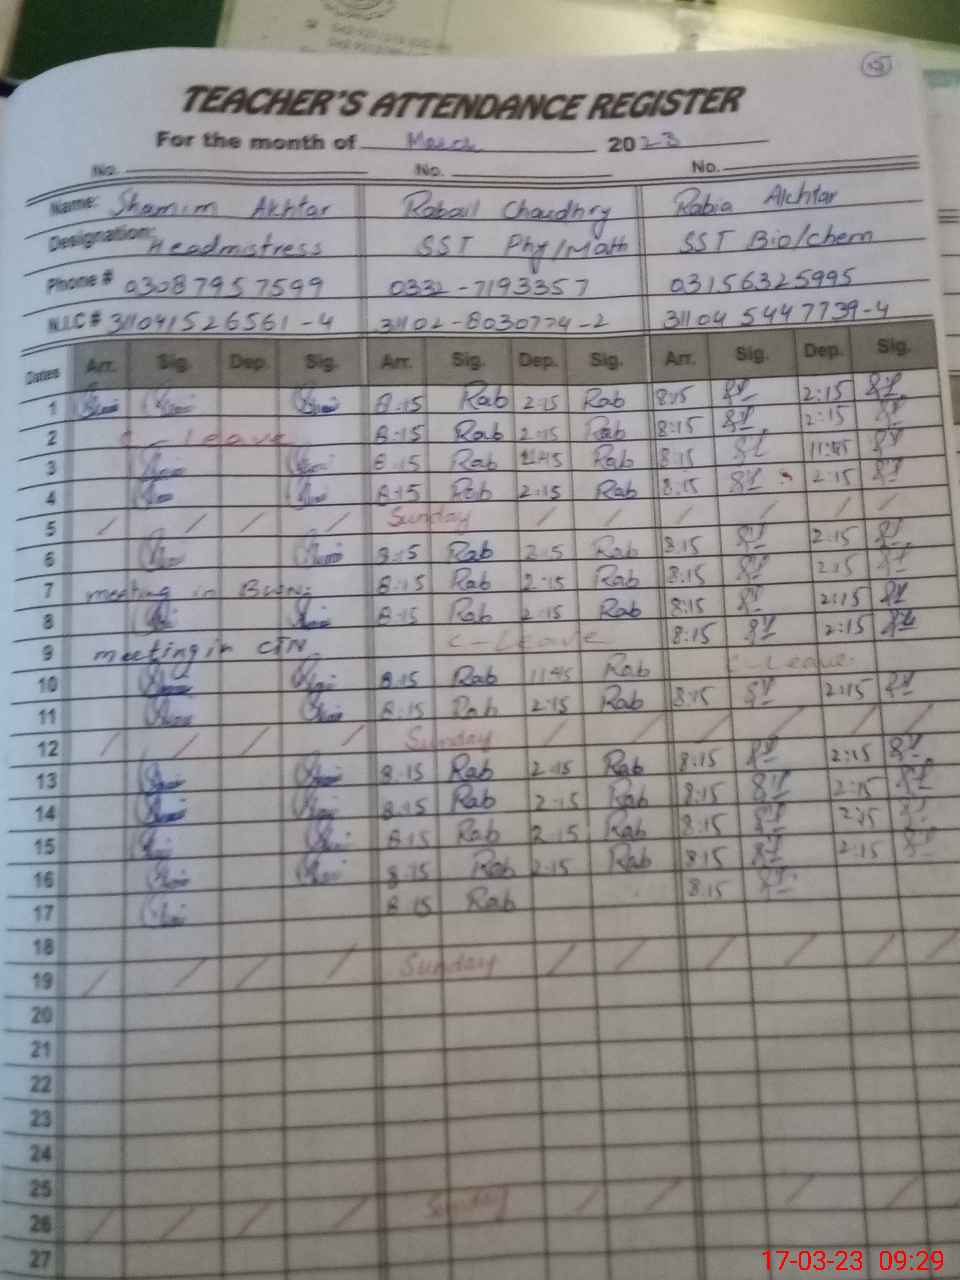 TEACHER'S ATTENDANCE REGISTER
For the month of March 2023
No. No. No.
Name: Shamim Akhtar Rabail Chaudhry Rabia Akhtar
Designation: Headmistress SST Phy/Math SST Bio/chem
Phone # 03087957599 0332-7193357 03156325995
N.I.C # 311041526561-4 31102-8030774-2 31104 5447739-4
Dates Arr. Sig. Dep. Sig. Arr. Sig. Dep. Sig. Arr. Sig. Dep. Sig.
1 8:15 Rab 2:15 Rab 8:15 2:15
2 Leave 8:15 Rab 2:15 Rab 8:15 2:15
3 8:15 Rab 11:45 Rab 8:15 11:45
4 8:15 Rab 2:15 Rab 8:15 2:15
5 / / / / Sunday / / / / / /
6 8:15 Rab 2:15 Rab 8:15 2:15
7 meeting in 8:15 Rab 2:15 Rab 8:15 2:15
8 8:15 Rab 2:15 Rab 8:15 2:15
9 meeting in CTN C-Leave 8:15 2:15
10 8:15 Rab 11:45 Rab C-Leave
11 8:15 Rab 2:15 Rab 8:15 2:15
12 / / / / Sunday / / / / / /
13 8:15 Rab 2:15 Rab 8:15 2:15
14 8:15 Rab 2:15 Rab 8:15 2:15
15 8:15 Rab 2:15 Rab 8:15 2:15
16 8:15 Rab 2:15 Rab 8:15 2:15
17 8:15 Rab 8:15
18
19 / / / / Sunday / / / / / /
20
21
22
23
24
25
26 / / / / Sunday / / / /
27
17-03-23 09:29